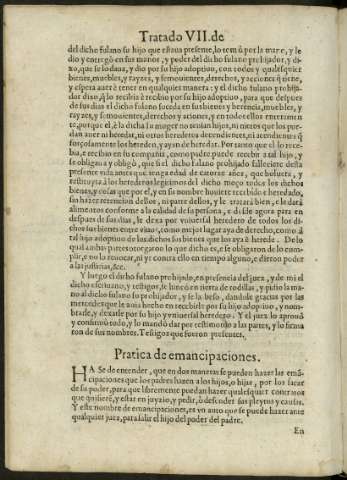 Tratado VII. de
del dicho fulano su hijo que estaua presente, lo tomò por la mano, y le
dio y entregò en sus manos, y poder del dicho fulano prohijador, y di-
xo, que se lo daua, y dio por su hijo adoptiuo, con todos y qualesquier
bienes, muebles, y rayzes, y semouientes, derechos, y acciones q̃ tiene,
y espera auer ò tener en qualquier manera: y el dicho fulano prohija-
dor dixo, q̃ lo recibia è recibio por su hijo adoptiuo, para que despues
de sus dias el dicho fulano suceda en sus bienes y herencia, muebles, y
rayzes, y semouientes, derechos y aciones, y en todo ello enteramen
te, porque el, è la dicha su muger no tenian hijos, ni nietos que los pue-
dan auer ni heredar, ni otros herederos decendientes, ni acendientes q̃
forçosamente los hereden, y ayan de heredar. Por tanto que el lo rece-
bia, e recibio en su compañia, como padre puede recebir a tal hijo, y
se obligaua y obligò, que si el dicho fulano prohijado falleciere desta
presente vida antes que tenga edad de catorze años, que boluera, y
restituyrà à los herederos legitimos del dicho moço todos los dichos
bienes, y cosas que por el, y en su nombre huuiere recebido e heredado,
sin hazer retencion dellos, ni parte dellos, y le tratarà bien, e le darà
alimentos conforme a la calidad de su persona, e desde agora para en
despues de sus dias, le dexa por vniuersal heredero de todos los di-
chos sus bienes entre viuos, como mejor lugar aya de derecho, como à
tal hijo adoptiuo de los dichos sus bienes que los aya è herede. De lo
qual ambas partes otorgaron lo que dicho es, e se obligaron de lo cum-
plir, e no lo reuocar, ni yr contra ello en tiempo alguno, e dieron poder
a las justicias, &c.
Y luego el dicho fulano prohijado, en presencia del juez, y de mi el
dicho escriuano, y testigos, se hincò en tierra de rodillas, y pidio la ma-
no al dicho fulano su prohijador, y se la besò, dandole gracias por las
mercedes que le auia hecho en recebirle por su hijo adoptiuo, y nom-
brarle, y dexarle por su hijo y vniuersal heredero. Y el juez lo aprouò
y consintiò todo, y lo mandò dar por testimonio a las partes, y lo firma
ron de sus nombres. Testigos que fueron presentes.
Pratica de emancipaciones.
HA Se de entender, que en dos maneras se pueden hazer las emã-
cipaciones que los padres hazen a los hijos, o hijas, por los sacar
de su poder, para que libremente puedan hazer qualesquier contratos
que quisierẽ, y estar en juyzio, y pedir, ò defender sus pleytos y causas.
Y este nombre de emancipaciones, es vn auto que se puede hazer ante
qualquier juez, para salir el hijo del poder del padre.
En